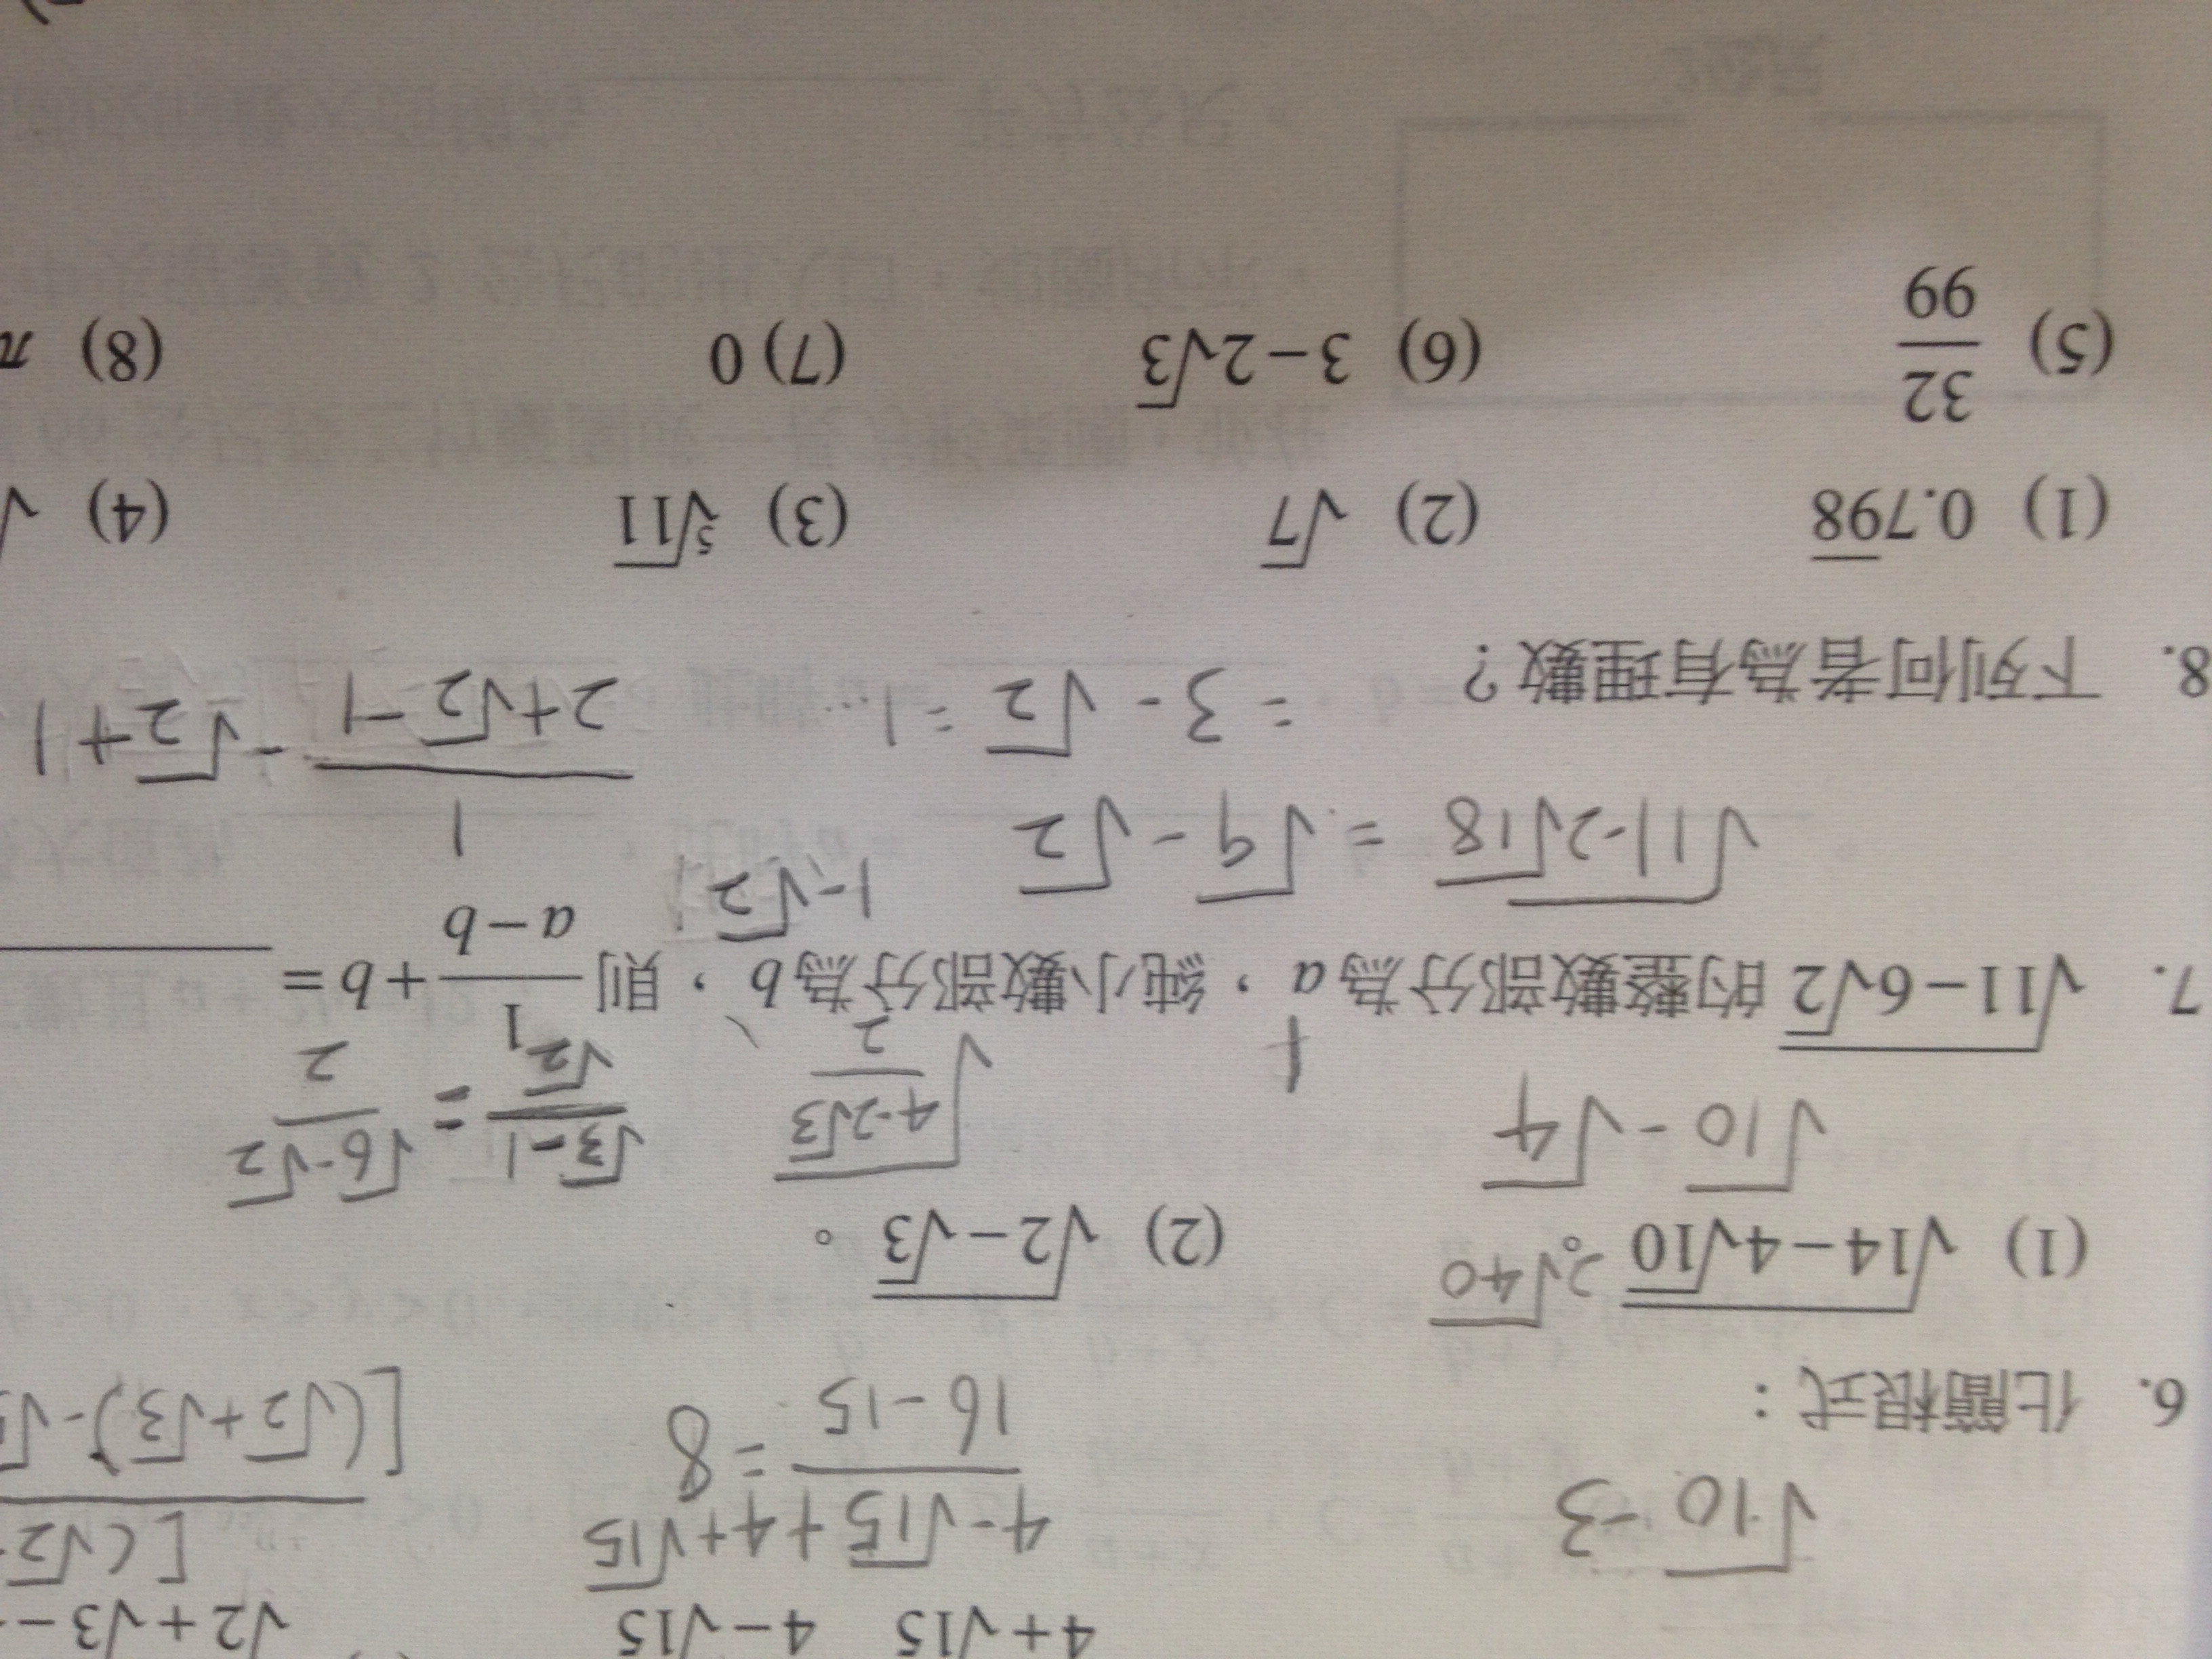 4+√15 4−√15 √2+√3−
4-√15+4+√15 [(√2
√10-3 16-15 =8 [(√2+√3)-√
6. 化簡根式:
(1) √(14−4√10)。 2√40 (2) √(2−√3)。
√10-√4 √((4-2√3)/2) (√3-1)/√2 = (√6-√2)/2
7. √(11−6√2) 的整數部分為 a,純小數部分為 b,則 1/(a−b) + b =
1-√2
√(11-2√18) = √9-√2 1
= 3-√2 = 1... 2+√2-1 -√2+1
8. 下列何者為有理數?
(1) 0.798 (2) √7 (3) ⁵√11 (4) √
(5) 32/99 (6) 3−2√3 (7) 0 (8) π